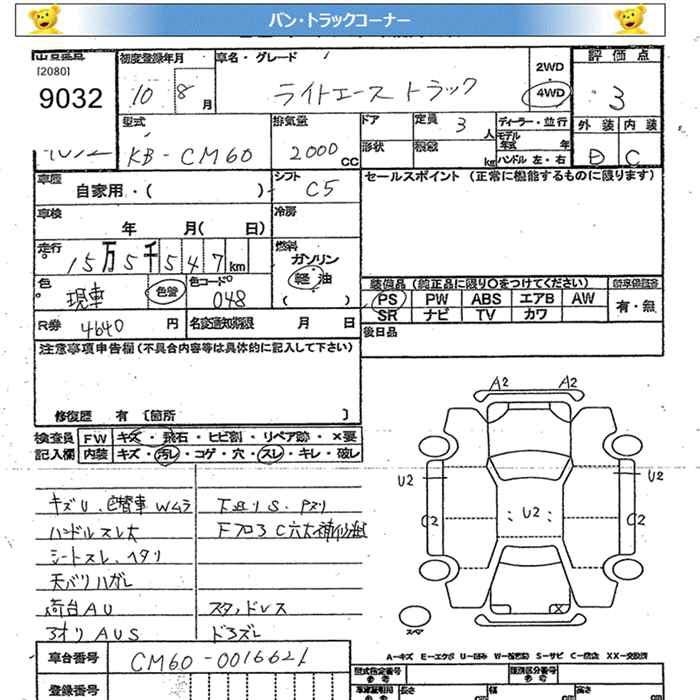 バン・トラックコーナー
[2080]
9032
初度登録年月
10 8 月
車名・グレード
ライトエース トラック
2WD
4WD
評価点
3
型式
KB-CM60
排気量
2000 CC
ドア
形状
定員 3 人
積載 kg
ディーラー・並行
モデル年式
ハンドル 左・右
外装 内装
D C
車歴
自家用・( )
シフト
C5
セールスポイント (正常に機能するものに限ります)
車検
年 月( 日)
冷房
走行
15万5千547km
燃料
ガソリン
軽油
( )
色
現車
色替
色コードNo
048
装備品 (純正品に限り○をつけてください)
PS PW ABS エアB AW
SR ナビ TV カワ
有・無
R券 4640 円
名変通知期限 月 日
後日品
注意事項申告欄(不具合内容等は具体的に記入して下さい)
修復歴 有 〔箇所 〕
検査員
記入欄
FW キズ・飛石・ヒビ割・リペア跡・×要
内装 キズ・汚レ・コゲ・穴・スレ・キレ・破レ
キズU、色替車 Wムラ
ハンドルスレ大
シートスレ、ヘタリ
天バリハガレ
荷台AU
3オリ AUS
下廻りS・Pズリ
スタッドレス
ドロズレ
A2 A2
U2 U2
C2 U2 C2
X
スペア
車台番号
CM60-0016621
A-キズ E-エクボ U-凹み W-補修跡 S-サビ C-腐食 XX-交換済
登録番号
型式指定番号
参考
類別区分番号
参考
長さ
幅
高さ